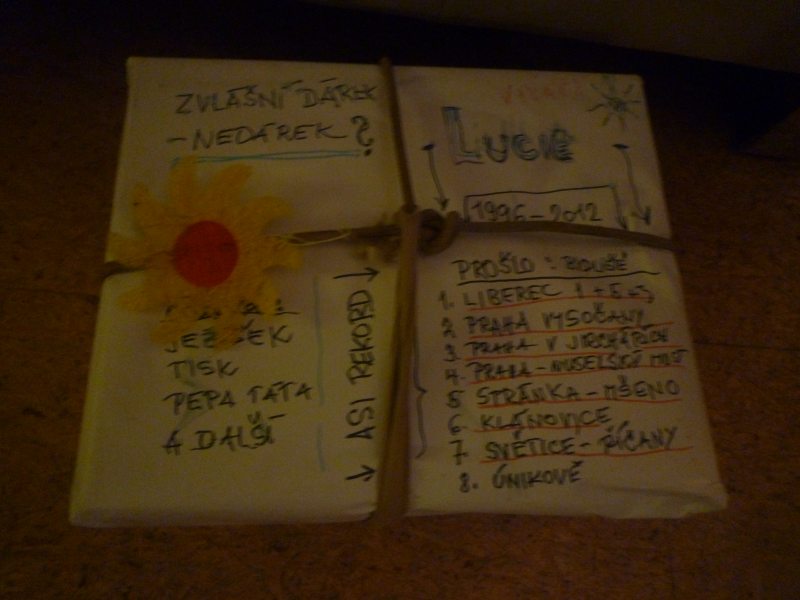 ZVLÁŠNÍ DÁREK
- NEDÁREK?
JEŽEČEK
TISK
PEPA TÁTA
A DALŠÍ
ASI REKORD
LUCIE
1996-2012
PROŠLO:
1. LIBEREC 1 +
2. PRAHA VYSOČANY
3. PRAHA V JIRCHÁŘÍCH
4. PRAHA - NUSELSKÝ MOST
5 STRÁNKA - MŠENO
6. KLÁNOVICE
7. SVĚTICE - ŘÍČANY
8. ÚNIKOVĚ